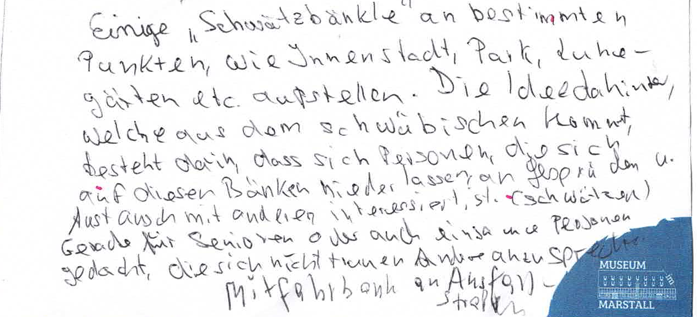 Einige „Schwätzbänkle" an bestimmten
Punkten, wie Innenstadt, Park, Luhe-
gärten etc. aufstellen. Die Idee dahinter,
welche aus dem schwäbischen kommt,
besteht darin, dass sich Personen, die sich
auf diesen Bänken niederlassen, an Gesprä den u.
Austausch mit anderen interessiert, st. (schwätzen)
Gerade für Senioren oder auch einsame Personen
gedacht, die sich nicht trauen Andere anzusprechen.
Mitfahrbank an Ausfall-
straßen
MUSEUM
MARSTALL